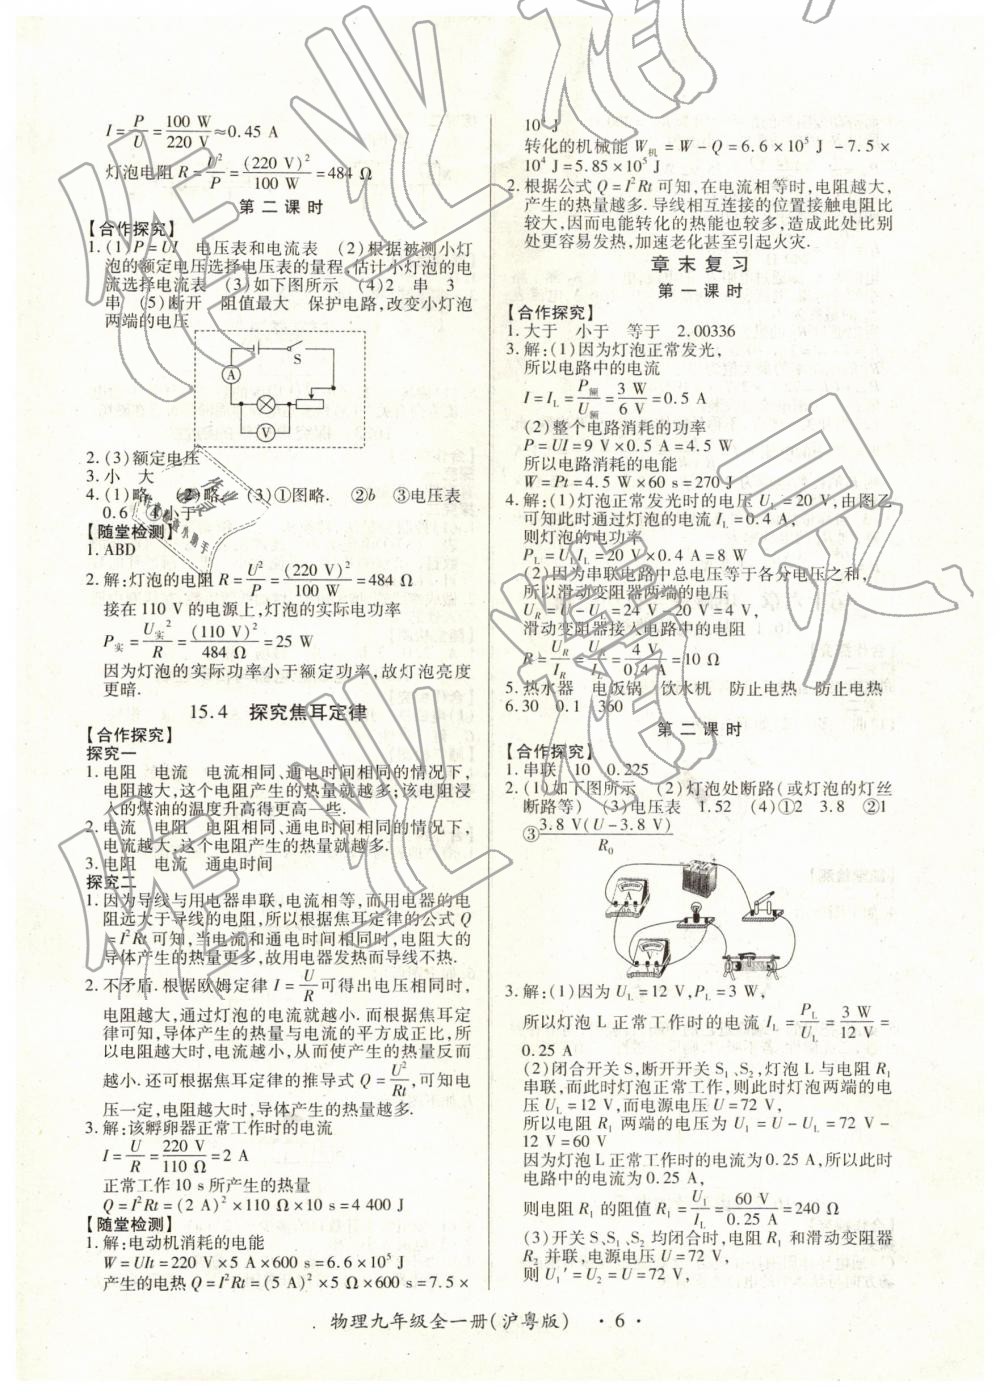 I=P/U=100 W/220 V≈0.45 A
灯泡电阻 R=U²/P=(220 V)²/100 W=484 Ω
第二课时
【合作探究】
1. (1) P=UI 电压表和电流表 (2)根据被测小灯
泡的额定电压选择电压表的量程,估计小灯泡的电
流选择电流表 (3)如下图所示 (4)2 串 3
串 (5)断开 阻值最大 保护电路,改变小灯泡
两端的电压
S
A
V
2. (3)额定电压
3. 小 大
4. (1)略 (2)略 (3)①图略. ②b ③电压表
0.6 ④小于
【随堂检测】
1. ABD
2. 解:灯泡的电阻 R=U²/P=(220 V)²/100 W=484 Ω
接在 110 V 的电源上,灯泡的实际电功率
P实=U实²/R=(110 V)²/484 Ω=25 W
因为灯泡的实际功率小于额定功率,故灯泡亮度
更暗.
15.4 探究焦耳定律
【合作探究】
探究一
1. 电阻 电流 电流相同、通电时间相同的情况下,
电阻越大,这个电阻产生的热量就越多;该电阻浸
入的煤油的温度升高得更高一些.
2. 电流 电阻 电阻相同、通电时间相同的情况下,
电流越大,这个电阻产生的热量就越多.
3. 电阻 电流 通电时间
探究二
1. 因为导线与用电器串联,电流相等,而用电器的电
阻远大于导线的电阻,所以根据焦耳定律的公式 Q
=I²Rt 可知,当电流和通电时间相同时,电阻大的
导体产生的热量更多,故用电器发热而导线不热.
2. 不矛盾. 根据欧姆定律 I=U/R 可得出电压相同时,
电阻越大,通过灯泡的电流就越小. 而根据焦耳定
律可知,导体产生的热量与电流的平方成正比,所
以电阻越大时,电流越小,从而使产生的热量反而
越小. 还可根据焦耳定律的推导式 Q=U²/Rt,可知电
压一定,电阻越大时,导体产生的热量越多.
3. 解:该孵卵器正常工作时的电流
I=U/R=220 V/110 Ω=2 A
正常工作 10 s 所产生的热量
Q=I²Rt=(2 A)²×110 Ω×10 s=4 400 J
【随堂检测】
1. 解:电动机消耗的电能
W=UIt=220 V×5 A×600 s=6.6×10⁵ J
产生的电热 Q=I²Rt=(5 A)²×5 Ω×600 s=7.5×
10⁴ J
转化的机械能 W机=W-Q=6.6×10⁵ J-7.5×
10⁴ J=5.85×10⁵ J
2. 根据公式 Q=I²Rt 可知,在电流相等时,电阻越大,
产生的热量越多. 导线相互连接的位置接触电阻比
较大,因而电能转化的热能也较多,造成此处比别
处更容易发热,加速老化甚至引起火灾.
章末复习
第一课时
【合作探究】
1. 大于 小于 等于 2.00336
3. 解:(1)因为灯泡正常发光,
所以电路中的电流
I=IL=P额/U额=3 W/6 V=0.5 A
(2)整个电路消耗的功率
P=UI=9 V×0.5 A=4.5 W
所以电路消耗的电能
W=Pt=4.5 W×60 s=270 J
4. 解:(1)灯泡正常发光时的电压 UL=20 V,由图乙
可知此时通过灯泡的电流 IL=0.4 A,
则灯泡的电功率
PL=ULIL=20 V×0.4 A=8 W
(2)因为串联电路中总电压等于各分电压之和,
所以滑动变阻器两端的电压
UR=U-UL=24 V-20 V=4 V,
滑动变阻器接入电路中的电阻
R=UR/IR=UR/IL=4 V/0.4 A=10 Ω
5. 热水器 电饭锅 饮水机 防止电热 防止电热
6. 30 0.1 360
第二课时
【合作探究】
1. 串联 10 0.225
2. (1)如下图所示 (2)灯泡处断路(或灯泡的灯丝
断路等) (3)电压表 1.52 (4)①2 3.8 ②1
③3.8 V(U-3.8 V)/R0
3. 解:(1)因为 UL=12 V,PL=3 W,
所以灯泡 L 正常工作时的电流 IL=PL/UL=3 W/12 V=
0.25 A
(2)闭合开关 S,断开开关 S1、S2,灯泡 L 与电阻 R1
串联,而此时灯泡正常工作,则此时灯泡两端的电
压 UL=12 V,而电源电压 U=72 V,
所以电阻 R1 两端的电压为 U1=U-UL=72 V-
12 V=60 V
因为灯泡 L 正常工作时的电流为 0.25 A,所以此时
电路中的电流为 0.25 A,
则电阻 R1 的阻值 R1=U1/IL=60 V/0.25 A=240 Ω
(3)开关 S、S1、S2 均闭合时,电阻 R1 和滑动变阻器
R2 并联,电源电压 U=72 V,
则 U1′=U2=U=72 V,
物理九年级全一册(沪粤版) ·6·